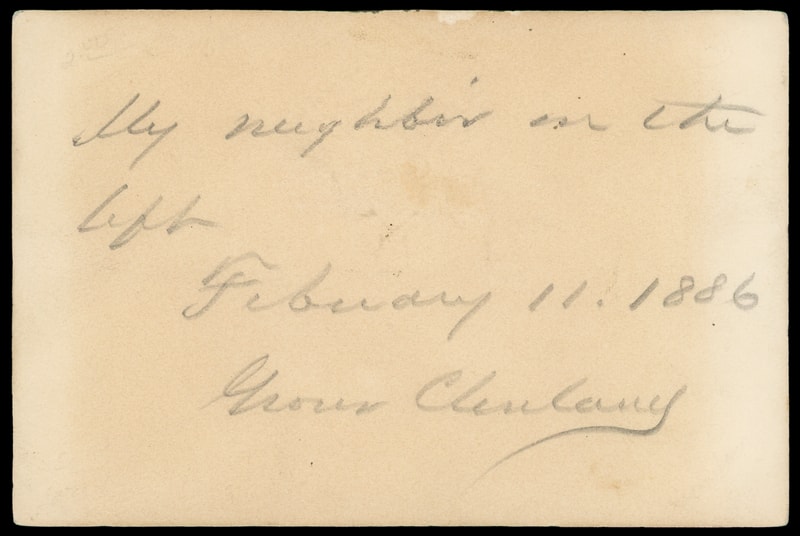 My neighbor on the
left
February 11. 1886
Grover Cleveland